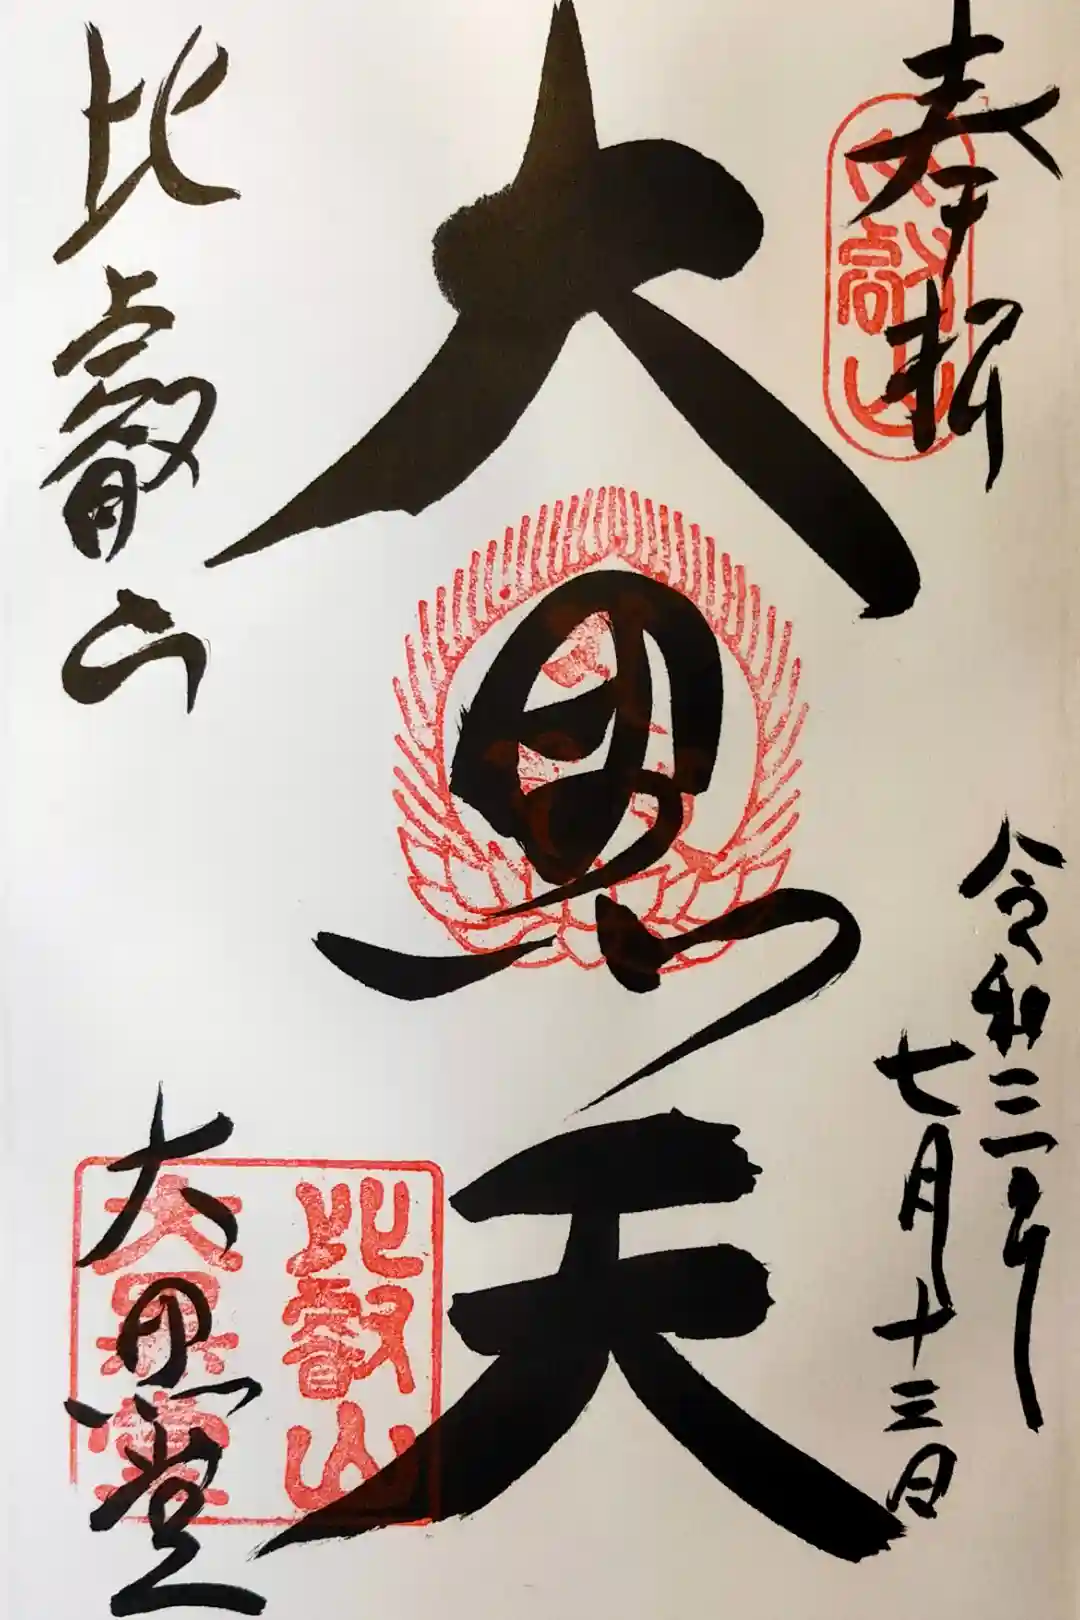 奉拝
令和二年
七月十三日
大黒天
比叡山
大黒堂
比叡山
大黒堂